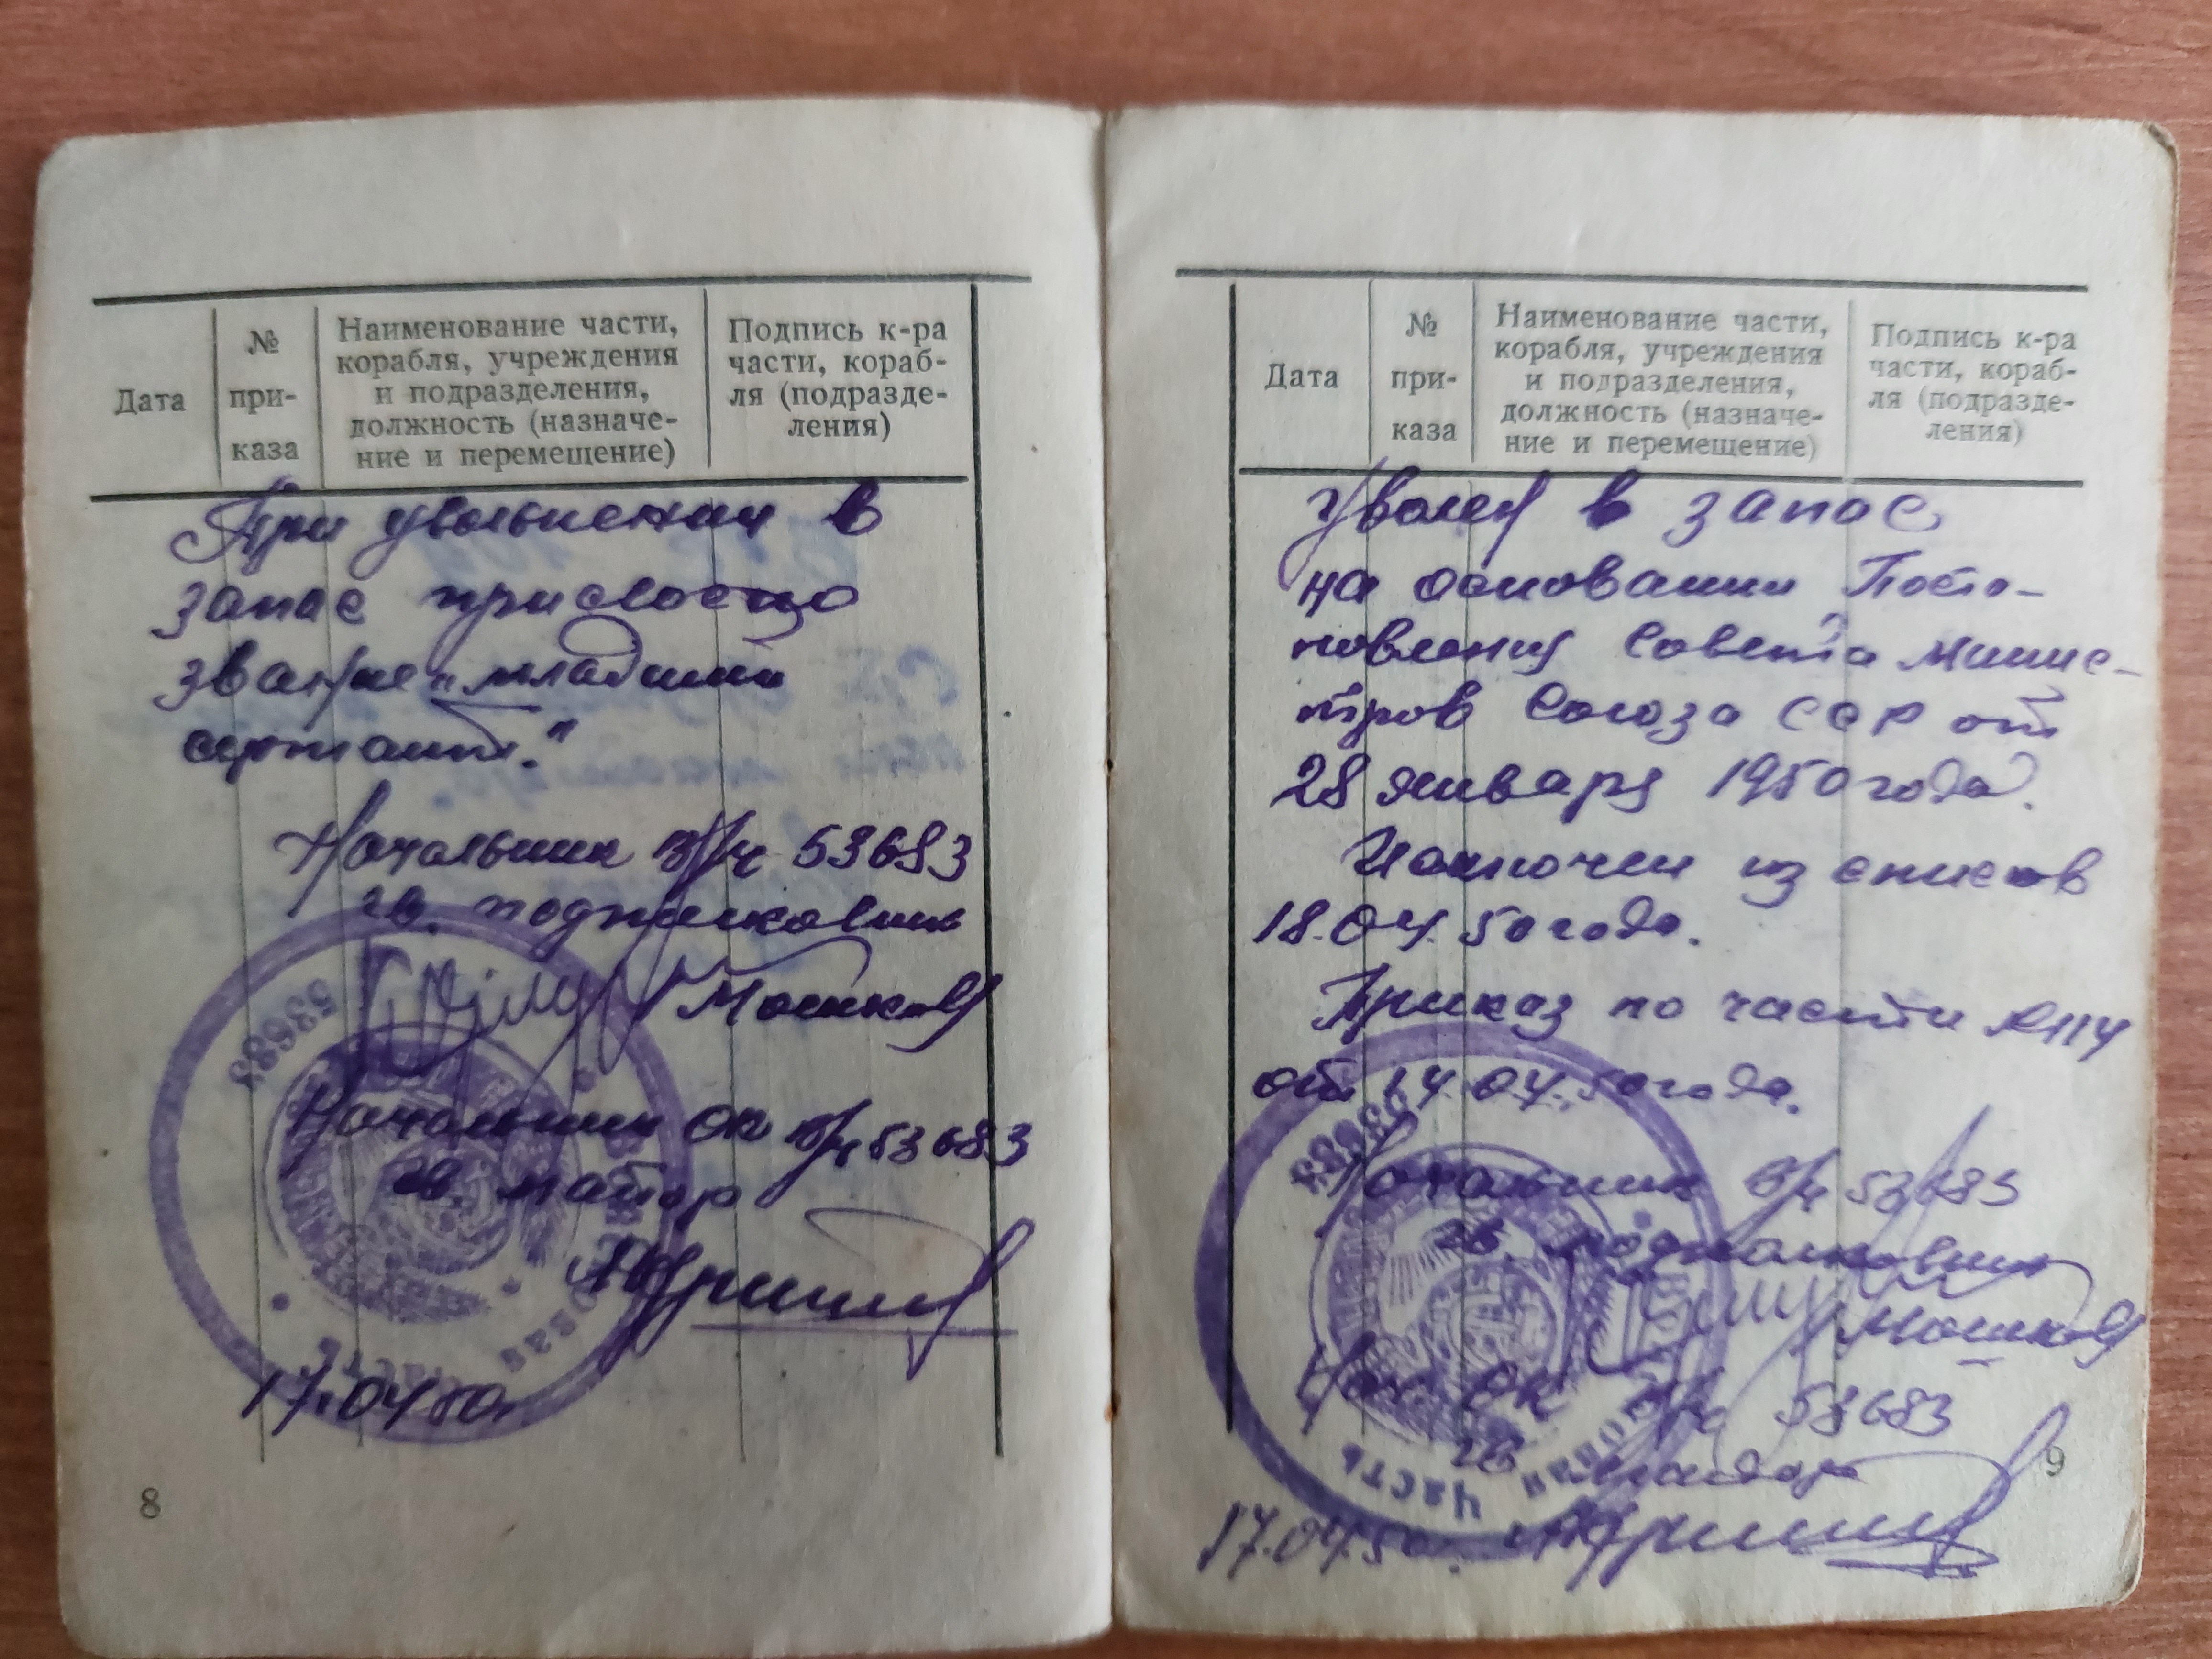 Дата
№
при-
каза
Наименование части,
корабля, учреждения
и подразделения,
должность (назначе-
ние и перемещение)
Подпись к-ра
части, кораб-
ля (подразде-
ления)
При увольнении в
запас присвоено
звание „младший
сержант."
Начальник в/ч 53683
гв. подполковник
Мошков
53683
Начальник ОК в/ч 53683
гв. майор
часть
17.04.50г.
8
Дата
№
при-
каза
Наименование части,
корабля, учреждения
и подразделения,
должность (назначе-
ние и перемещение)
Подпись к-ра
части, кораб-
ля (подразде-
ления)
Уволен в запас
на основании Поста-
новления Совета Минис-
тров Союза ССР от
28 января 1950 года.
Исключен из списков
18.04.50 года.
Приказ по части №114
от 14.04.50 года.
53683
Начальник в/ч 53683
гв. подполковник
Мошков
Нач. ОК в/ч 53683
гв. майор
часть
17.04.50г.
9